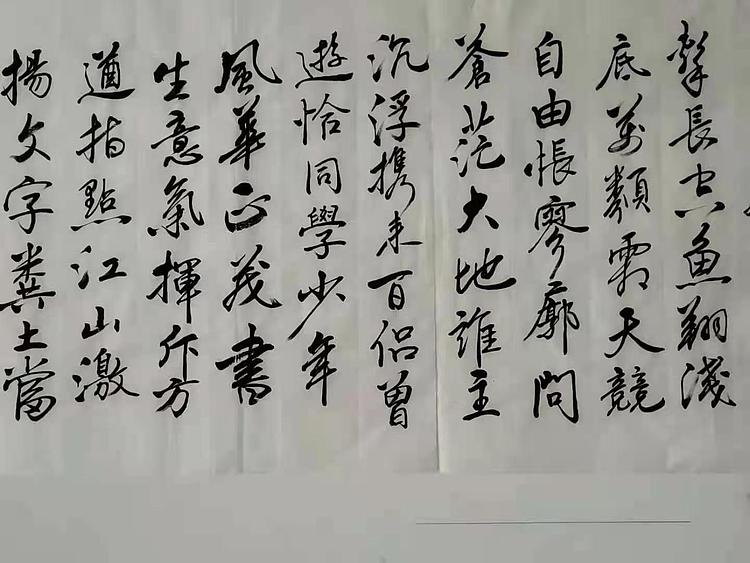 擊長空魚翔淺
底萬類霜天競
自由悵寥廓問
蒼茫大地誰主
沉浮携来百侣曾
遊恰同學少年
風華正茂書
生意氣揮斥方
遒指點江山激
揚文字糞土當